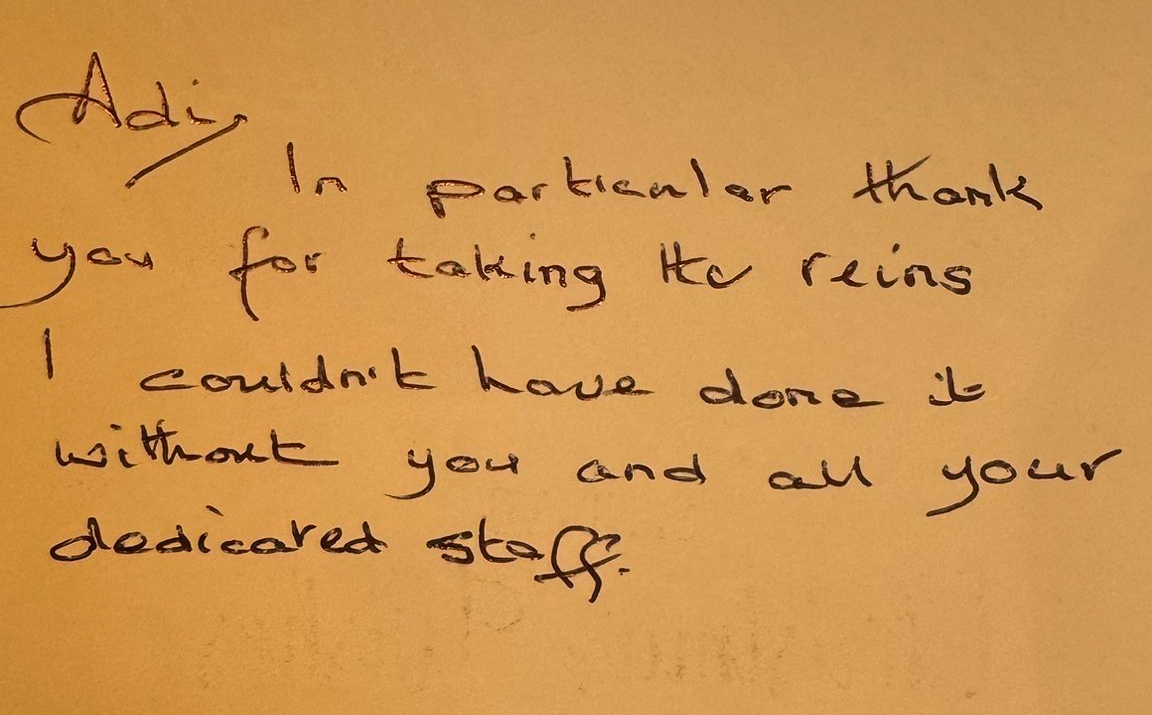 Adi,
In particular thank
you for taking the reins
I couldn't have done it
without you and all your
dedicated staff.